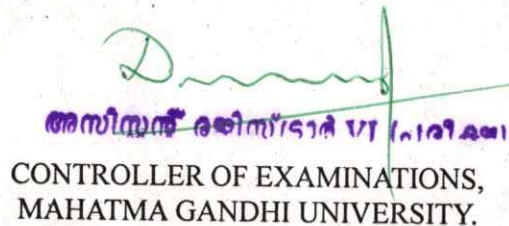 അസിസ്റ്റന്റ് രജിസ്ട്രാർ VI (പരീക്ഷ)
CONTROLLER OF EXAMINATIONS,
MAHATMA GANDHI UNIVERSITY.